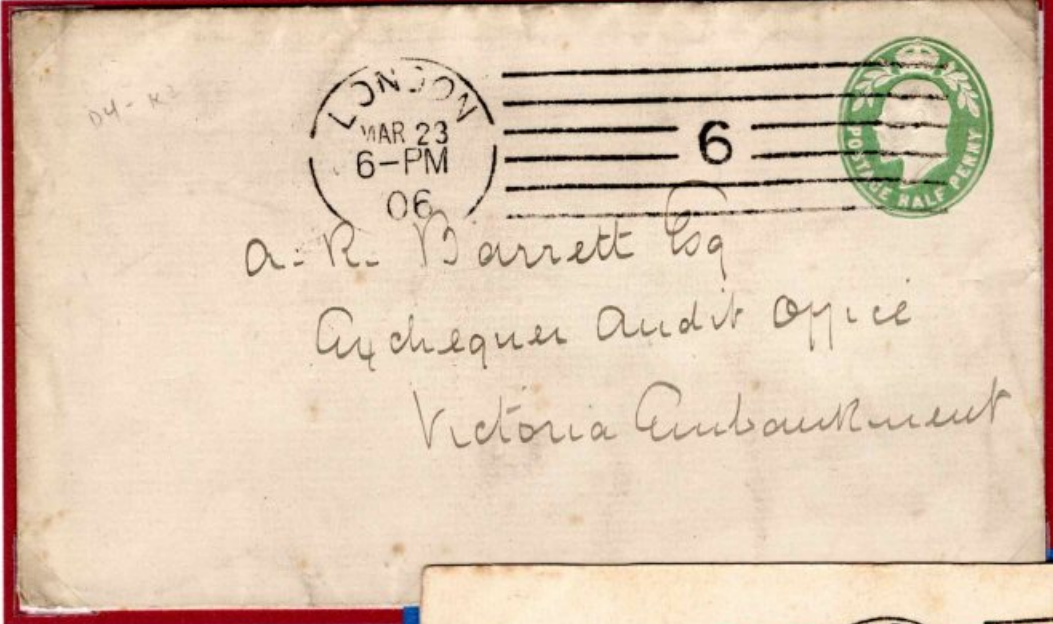 LONDON
MAR 23
6-PM
06
6
POSTAGE HALF PENNY
A. R. Barrett Esq
Exchequer Audit Office
Victoria Embankment